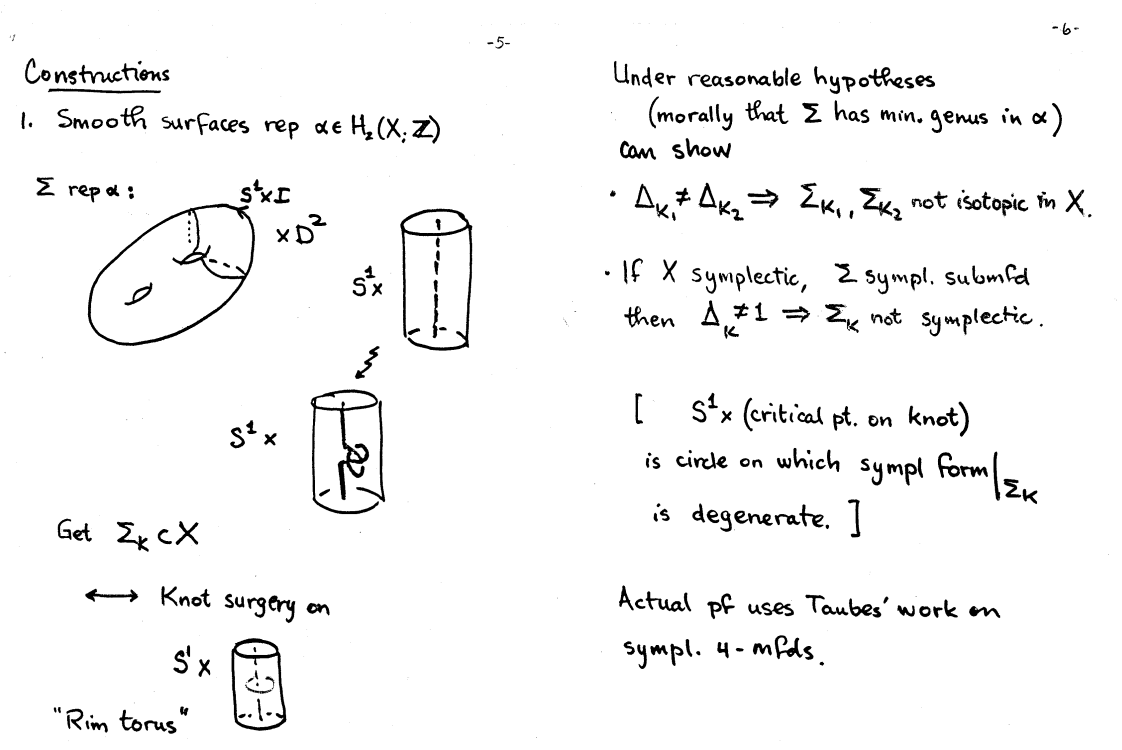 -5-
Constructions
1. Smooth surfaces rep α∈ H₂(X; ℤ)
Σ rep α :
S¹×I
×D²
S¹×
S¹ ×
Get Σ_K ⊂ X
⟷ Knot surgery on
S¹ ×
"Rim torus"
-6-
Under reasonable hypotheses
(morally that Σ has min. genus in α)
can show
· Δ_K₁ ≠ Δ_K₂ ⇒ Σ_K₁, Σ_K₂ not isotopic in X.
· If X symplectic, Σ sympl. submfd
then Δ_K ≠ 1 ⇒ Σ_K not symplectic.
[ S¹ × (critical pt. on knot)
is circle on which sympl form|_Σ_K
is degenerate. ]
Actual pf uses Taubes' work on
sympl. 4-mfds.